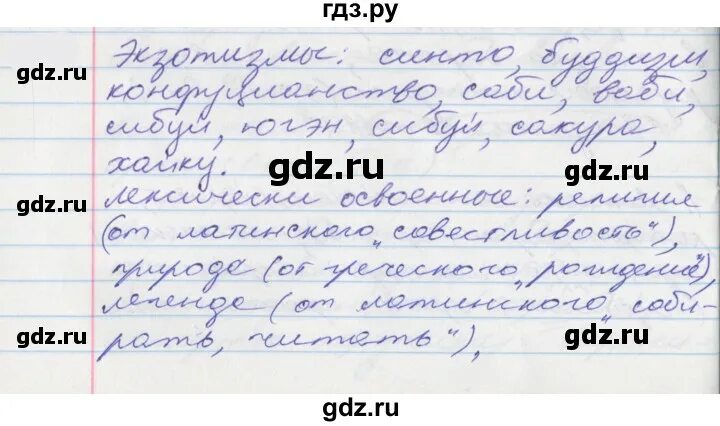 гдз.ру
Экзотизмы: синто, буддизм,
конфуцианство, саби, ваби,
сибуи, югэн, сибуи, сакура,
хайку.
лексически освоенные: религия
(от латинского „совестливость"),
природа (от греческого „рождение"),
легенда (от латинского „соби-
рать, читать"),
gdz.ru
gdz.ru
gdz.ru
gdz.ru
gdz.ru
gdz.ru
gdz.ru
gdz.ru
gdz.ru